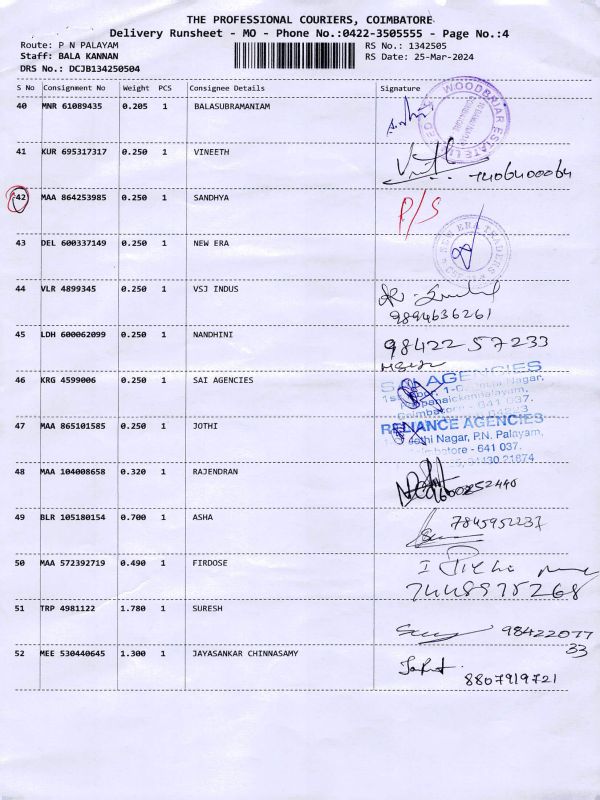 THE PROFESSIONAL COURIERS, COIMBATORE
Delivery Runsheet - MO - Phone No.:0422-3505555 - Page No.:4
Route: P N PALAYAM
RS No.: 1342505
Staff: BALA KANNAN
RS Date: 25-Mar-2024
DRS No.: DCJB134250504
S No Consignment No Weight PCS Consignee Details Signature
40 MNR 61089435 0.205 1 BALASUBRAMANIAM
WOODBRIAR ESTATE
41 KUR 695317317 0.250 1 VINEETH
7406400064
42 MAA 864253985 0.250 1 SANDHYA P/S
43 DEL 600337149 0.250 1 NEW ERA
NEW ERA TRADERS
44 VLR 4899345 0.250 1 VSJ INDUS
9894636261
45 LDH 600062099 0.250 1 NANDHINI
98422 57233
46 KRG 4599006 0.250 1 SAI AGENCIES
SAI AGENCIES
Nagar,
641 037.
47 MAA 865101585 0.250 1 JOTHI
RELIANCE AGENCIES
Jothi Nagar, P.N. Palayam,
Coimbatore - 641 037.
94430 21874
48 MAA 104008658 0.320 1 RAJENDRAN
49 BLR 105180154 0.700 1 ASHA
7845952237
50 MAA 572392719 0.490 1 FIRDOSE
7448975268
51 TRP 4981122 1.780 1 SURESH
98422077
33
52 MEE 530440645 1.300 1 JAYASANKAR CHINNASAMY
8807919721